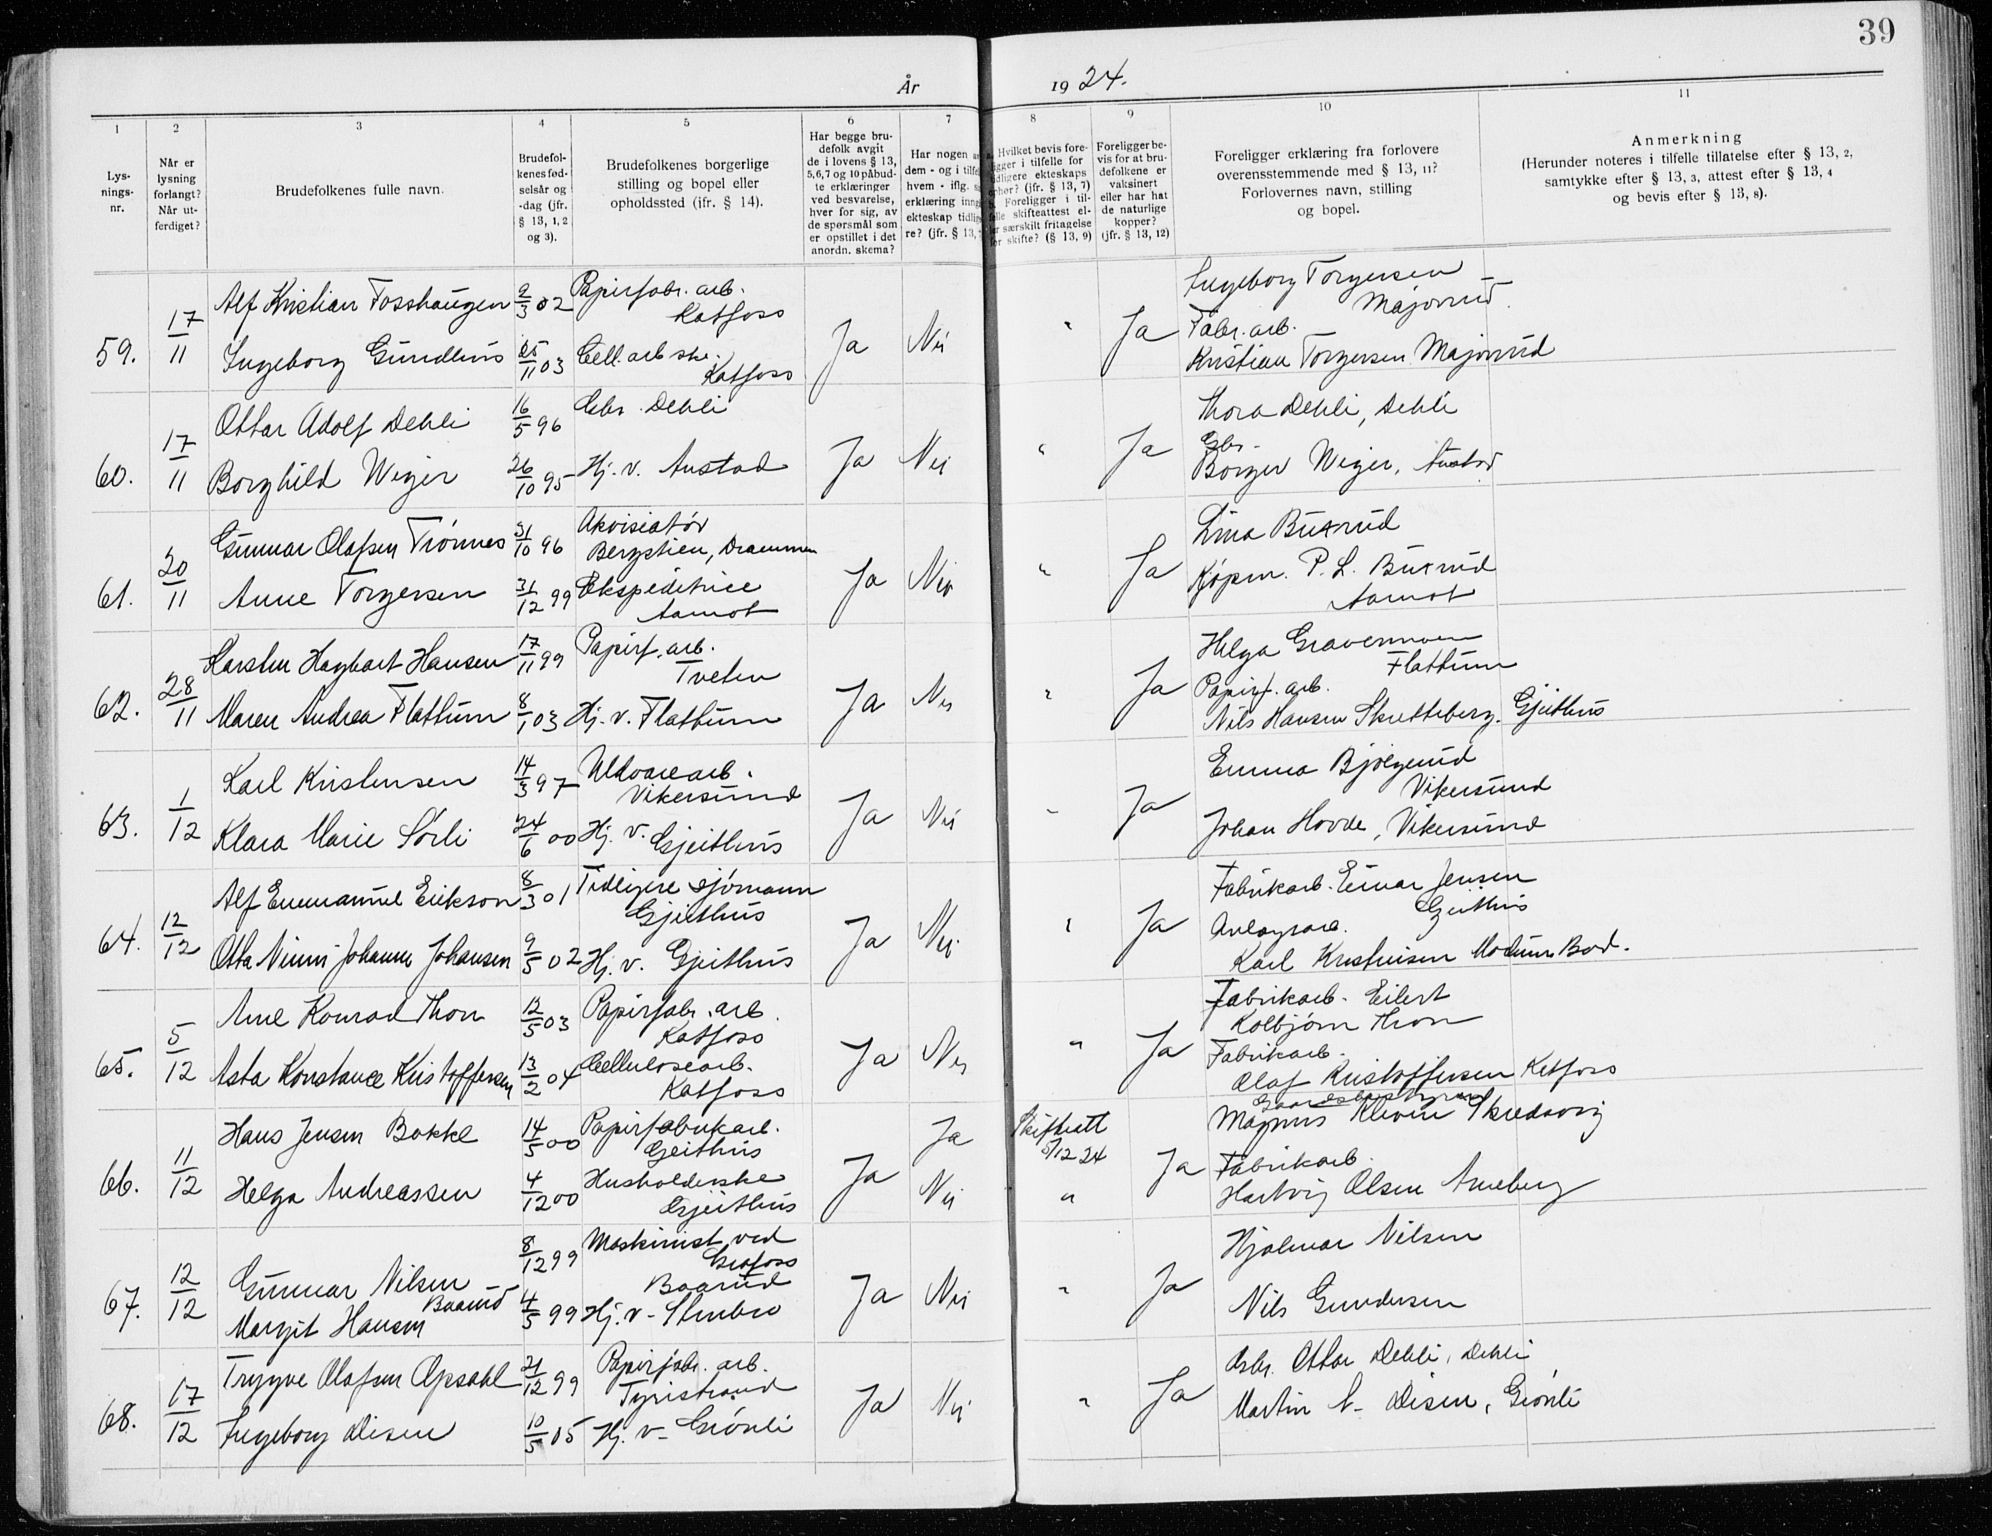 39
År 1924.
1 2 3 4 5 6 7 8 9 10 11
Lys-
nings-
nr.
Når er
lysning
forlangt?
Når ut-
ferdiget?
Brudefolkenes fulle navn.
Brudefol-
kenes fød-
selsår og
-dag (jfr.
§ 13, 1, 2
og 3).
Brudefolkenes borgerlige
stilling og bopel eller
opholdssted (jfr. § 14).
Har begge bru-
defolk avgit
de i lovens § 13,
5,6,7 og 10 påbud-
te erklæringer
ved besvarelse,
hver for sig, av
de spørsmål som
er opstillet i det
anordn. skema?
Har nogen
dem - og i tilfe
hvem - iflg.
erklæring inng
ekteskap tidlig
re? (jfr. § 13,
Hvilket bevis fore-
ligger i tilfelle for
tidligere ekteskaps
ophør? (jfr. § 13, 7)
Foreligger i til-
felle skifteattest el-
ler særskilt fritagelse
for skifte? (§ 13, 9)
Foreligger be-
vis for at bru-
defolkene er
vaksinert
eller har hat
de naturlige
kopper?
(jfr. § 13, 12)
Foreligger erklæring fra forlovere
overensstemmende med § 13, 11?
Forlovernes navn, stilling
og bopel.
Anmerkning
(Herunder noteres i tilfelle tillatelse efter § 13, 2,
samtykke efter § 13, 3, attest efter § 13, 4
og bevis efter § 13, 8).
59. 17/11 Alf Kristian Fosshaugen 9/3 02 Papirfabr. arb. Katfoss
Ingeborg Gundhus 25/11 03 Cell. arb.ske. Katfoss
Ja Nei " Ja
Ingeborg Torgersen
Majorrud.
Fabr. arb.
Kristian Torgersen Majorrud
60. 17/11 Ottar Adolf Dehli 16/5 96 Gbr. Dehli
Borghild Weger 26/10 95 Hj. v. Anstad
Ja Nei " Ja
Thora Dehli, Dehli
Gbr.
Borger Weger, Anstad
61. 20/11 Gunnar Olafsen Trønnes 31/10 96 Akvisiatør
Bergstien, Drammen
Anne Torgersen 31/12 99 Ekspeditrice
Aamot
Ja Nei " Ja
Lina Buxrud
Kjøpm. P. L. Buxrud
Aamot
62. 28/11 Karsten Hagbart Hansen 17/11 99 Papirf. arb.
Tveten
Maren Andrea Flattum 8/1 03 Hj. v. Flattum
Ja Nei " Ja
Helga Gravermoen
Flattum
Papirf. arb.
Nils Hansen Skretteberg. Gjeithus
63. 1/12 Karl Kristensen 14/3 97 Uldvarearb.
Vikersund
Klara Marie Sørli 24/6 00 Hj. v. Gjeithus
Ja Nei " Ja
Emma Bjølgerud
Vikersund
Johan Hovde, Vikersund
64. 12/12 Alf Emmanuel Erikson 8/3 01 Tidligere sjømann
Gjeithus
Otta Ninni Johanne Johansen 9/5 02 Hj. v. Gjeithus
Ja Nei " Ja
Fabrikarb. Einar Jensen
Gjeithus
Anlegsarb.
Karl Kristensen Modum Bad.
65. 5/12 Arne Konrad Thon 12/5 03 Papirfabr. arb.
Katfoss
Asta Konstance Kristoffersen 13/2 04 Cellulosearb.
Katfoss
Ja Nei " Ja
Fabrikarb. Eilert
Kolbjørn Thon
Fabrikarb.
Olaf Kristoffersen Katfoss
66. 11/12 Hans Jensen Bakke 14/5 00 Papirfabrikarb.
Geithus
Helga Andreassen 4/12 00 Husholderske
Gjeithus
Ja Ja Nei Skifteatt
5/12 24 " Ja
Gaardsbestyrer
Magnus Kleven Skredsvig
Fabrikarb.
Hartvig Olsen Arneberg
67. 12/12 Gunnar Nilsen
Baarud 8/12 99 Maskinist ved
Gravfoss
Baarud
Margit Hansen 4/5 99 Hj. v - Stenbro
Ja Nei " Ja
Hjalmar Nilsen
Nils Gundersen
68. 17/12 Trygve Olafsen Opsahl 21/12 99 Papirfabr. arb.
Tyristrand
Ingeborg Disen 10/5 05 Hj. v - Grønli
Ja Nei " Ja
Gbr. Ottar Dehli, Dehli
Martin N. Disen, Grønli